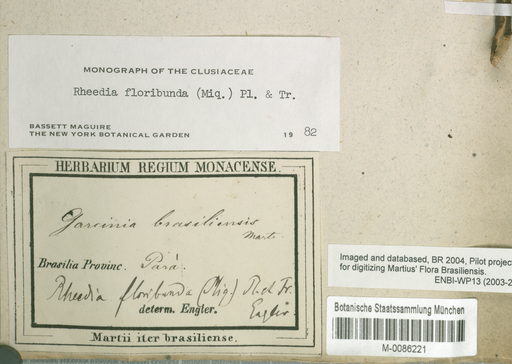 MONOGRAPH OF THE CLUSIACEAE
Rheedia floribunda (Miq.) Pl. & Tr.
BASSETT MAGUIRE
THE NEW YORK BOTANICAL GARDEN 19 82
HERBARIUM REGIUM MONACENSE.
Garcinia brasiliensis
Mart.
Brasilia Provinc. Pará.
Rheedia floribunda (Miq.) Pl. et Tr.
determ. Engler.
Engler.
Martii iter brasiliense.
Imaged and databased, BR 2004, Pilot project
for digitizing Martius' Flora Brasiliensis.
ENBI-WP13 (2003-2
Botanische Staatssammlung München
M-0086221